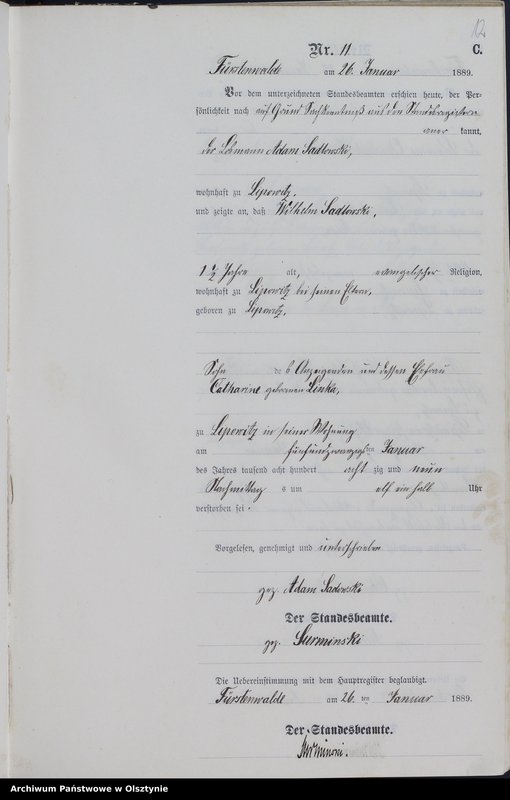 12
Nr. 11 C.
Fürstenwalde am 26. Januar 1889.
Vor dem unterzeichneten Standesbeamten erschien heute, der Per-
sönlichkeit nach auf Grund aus den Standesregistern
aner kannt,
der Lohmann Adam Sadlowski,
wohnhaft zu Lipowitz,
und zeigte an, daß Wilhelm Sadlowski,
1 1/2 Jahre alt, evangelischer Religion,
wohnhaft zu Lipowitz bei seinen Eltern,
geboren zu Lipowitz,
Sohn des Anzeigenden und dessen Ehefrau
Catharine geborenen Linka,
zu Lipowitz in seiner Wohnung
am fünfundzwanzigsten Januar
des Jahres tausend acht hundert acht zig und neun
Nachmittag s um elf ein halb Uhr
verstorben sei.
Vorgelesen, genehmigt und unterschrieben
gez. Adam Sadowski
Der Standesbeamte.
gez. Surminski
Die Uebereinstimmung mit dem Hauptregister beglaubigt.
Fürstenwalde am 26. ten Januar 1889.
Der Standesbeamte.
Surminski.
Archiwum Państwowe w Olsztynie